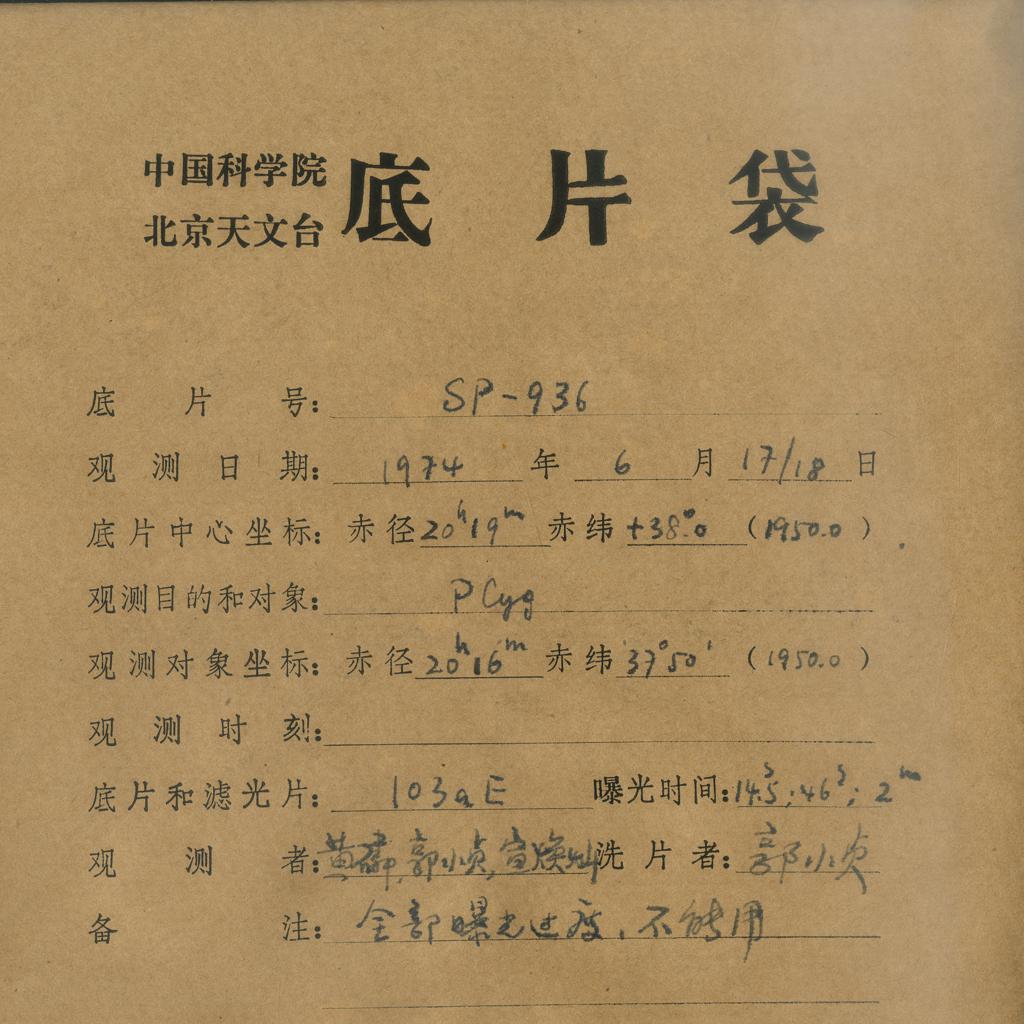 中国科学院
北京天文台
底片袋
底片号: SP-936
观测日期: 1974 年 6 月 17/18 日
底片中心坐标: 赤径 20ʰ19ᵐ 赤纬 +38°.0 (1950.0)
观测目的和对象: P Cyg
观测对象坐标: 赤径 20ʰ16ᵐ 赤纬 37°50′ (1950.0)
观测时刻:
底片和滤光片: 103aE 曝光时间: 14ˢ.5; 46ˢ; 2ᵐ
观测者: 黄磷, 郭小贞, 宣焕灿 洗片者: 郭小贞
备注: 全部曝光过度, 不能用